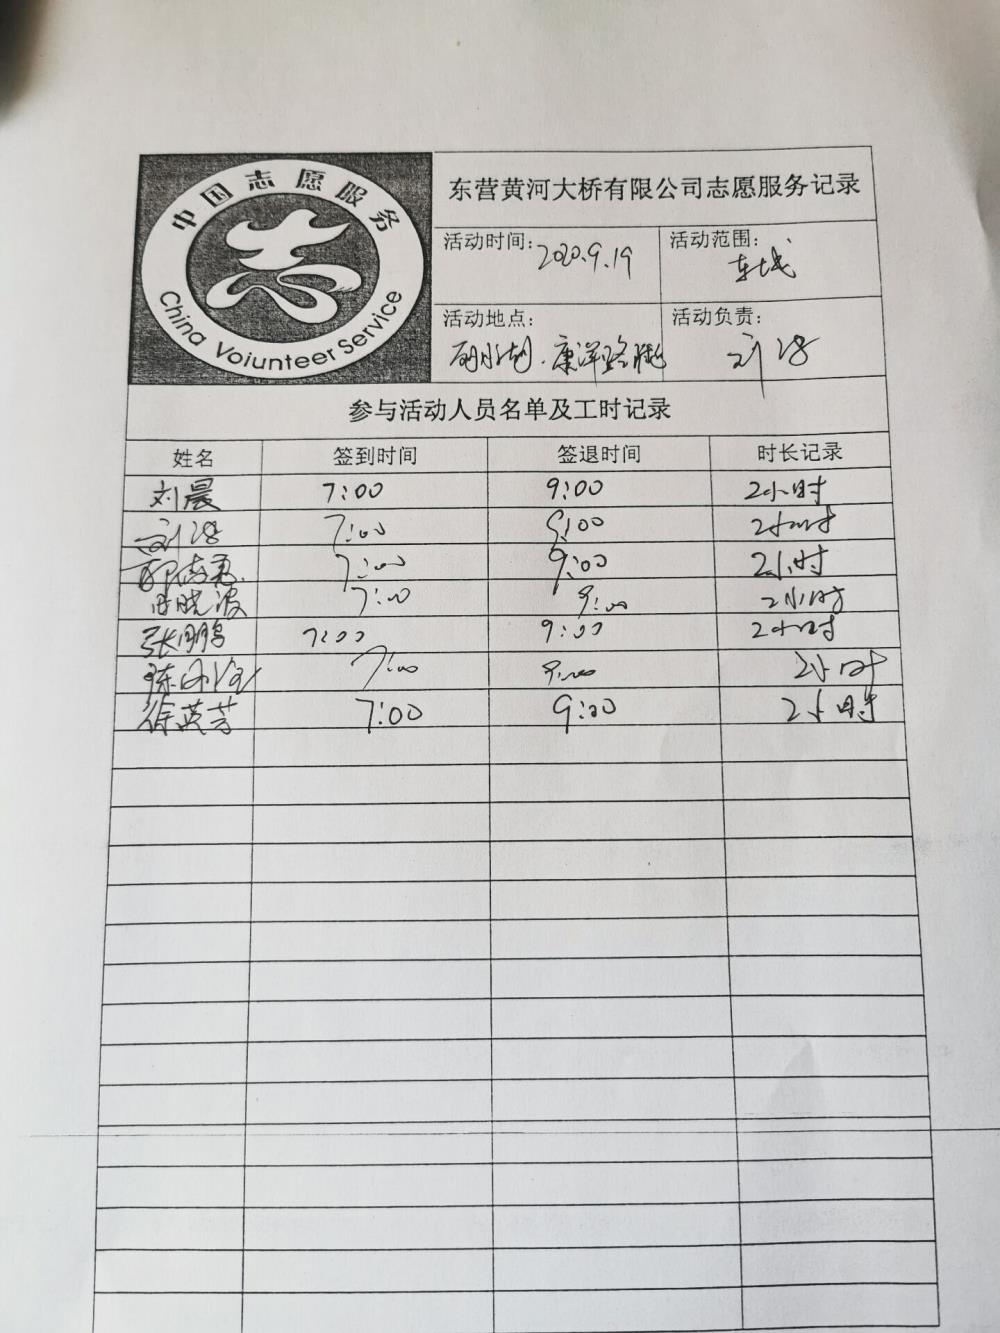 中国志愿服务
China Voiunteer Service
东营黄河大桥有限公司志愿服务记录
活动时间: 2020.9.19
活动范围: 东城
活动地点: 康洋路
活动负责: 刘
参与活动人员名单及工时记录
姓名 签到时间 签退时间 时长记录
刘晨 7:00 9:00 2小时
刘 7:00 9:00 2小时
7:00 9:00 2小时
晓波 7:00 9:00 2小时
张鹏 7:00 9:00 2小时
陈 7:00 9:00 2小时
徐英芳 7:00 9:00 2小时